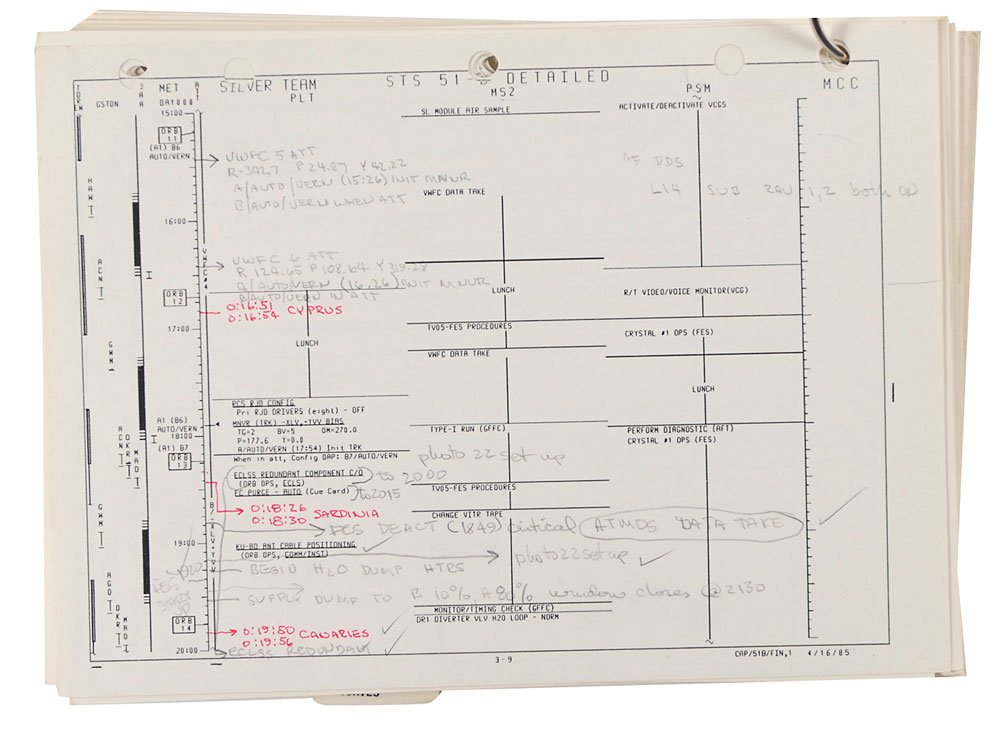 STS 51- DETAILED
SILVER TEAM
PLT
MS2
PSM
MCC
GSTDN
MET
DA1000
15:00
SL MODULE AIR SAMPLE
ACTIVATE/DEACTIVATE VCGS
ORB
11
(A1) B6
AUTO/VERN
VWFC 5 ATT
R=342.7 P 24.87 Y 42.22
A/AUTO/VERN (15:26) INIT MNVR
B/AUTO/VERN WHEN ATT
VWFC DATA TAKE
DDS
L14 SUB RAU 1,2 both ON
16:00
VWFC 6 ATT
R 124.65 P 108.64 Y 319.28
A/AUTO/VERN (16:26) INIT MNVR
B/AUTO/VERN IN ATT
ORB
12
LUNCH
R/T VIDEO/VOICE MONITOR(VCG)
0:16:51
0:16:54 CYPRUS
17:00
TV05-FES PROCEDURES
CRYSTAL #1 OPS (FES)
LUNCH
VWFC DATA TAKE
LUNCH
PCS RJD CONFIG
Pri RJD DRIVERS (eight) - OFF
MNVR (TRK) -XLV,-YVV BIAS
TG=2 BV=5 OM=270.0
P=177.6 Y=0.0
A/AUTO/VERN (17:54) Init TRK
When in att, Config DAP: B7/AUTO/VERN
A1 (B6)
AUTO/VERN
18:00
(A1) B7
ORB
13
TYPE-I RUN (GFFC)
PERFORM DIAGNOSTIC (AFT)
CRYSTAL #1 OPS (FES)
photo 22 set up
ECLSS REDUNDANT COMPONENT C/O
(ORB OPS, ECLS)
to 2000
FC PURGE - AUTO (Cue Card)
to 2015
TV05-FES PROCEDURES
0:18:26
0:18:30 SARDINIA
CHANGE VITR TAPE
FES DEACT (1849) critical ATMOS DATA TAKE
19:00
KU-BD ANT CABLE POSITIONING
(ORB OPS, COMM/INST)
photo 22 set up
BEGIN H2O DUMP HTRS
SUPPLY DUMP TO B 10%, A 80% window closes @ 2130
MONITOR/TIMING CHECK (GFFC)
DRI DIVERTER VLV H2O LOOP - NORM
ORB
14
0:19:50
0:19:56 CANARIES
20:00
ECLSS REDUNDANT
3-9
CAP/51B/FIN,1 4/16/85